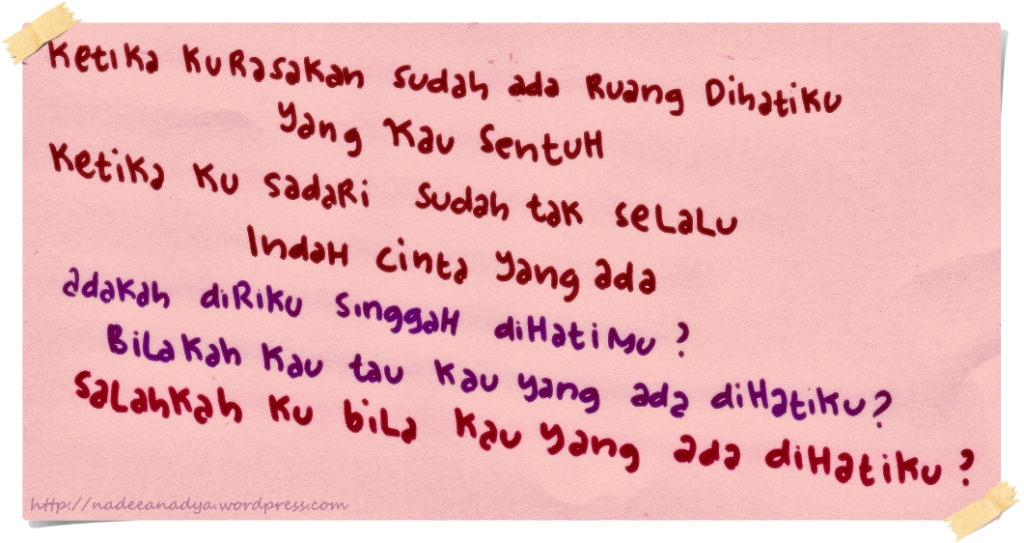 Ketika KuRasaKan sudah ada Ruang DihatiKu
yang Kau SentuH
KetiKa Ku sadaRi sudah tak seLaLu
IndaH cinta yang ada
adaKah diRiKu singgaH diHatiMu ?
BiLaKah Kau tau Kau yang ada diHatiKu?
SaLahKah Ku biLa Kau yang ada diHatiKu ?
http://nadeeanadya.wordpress.com